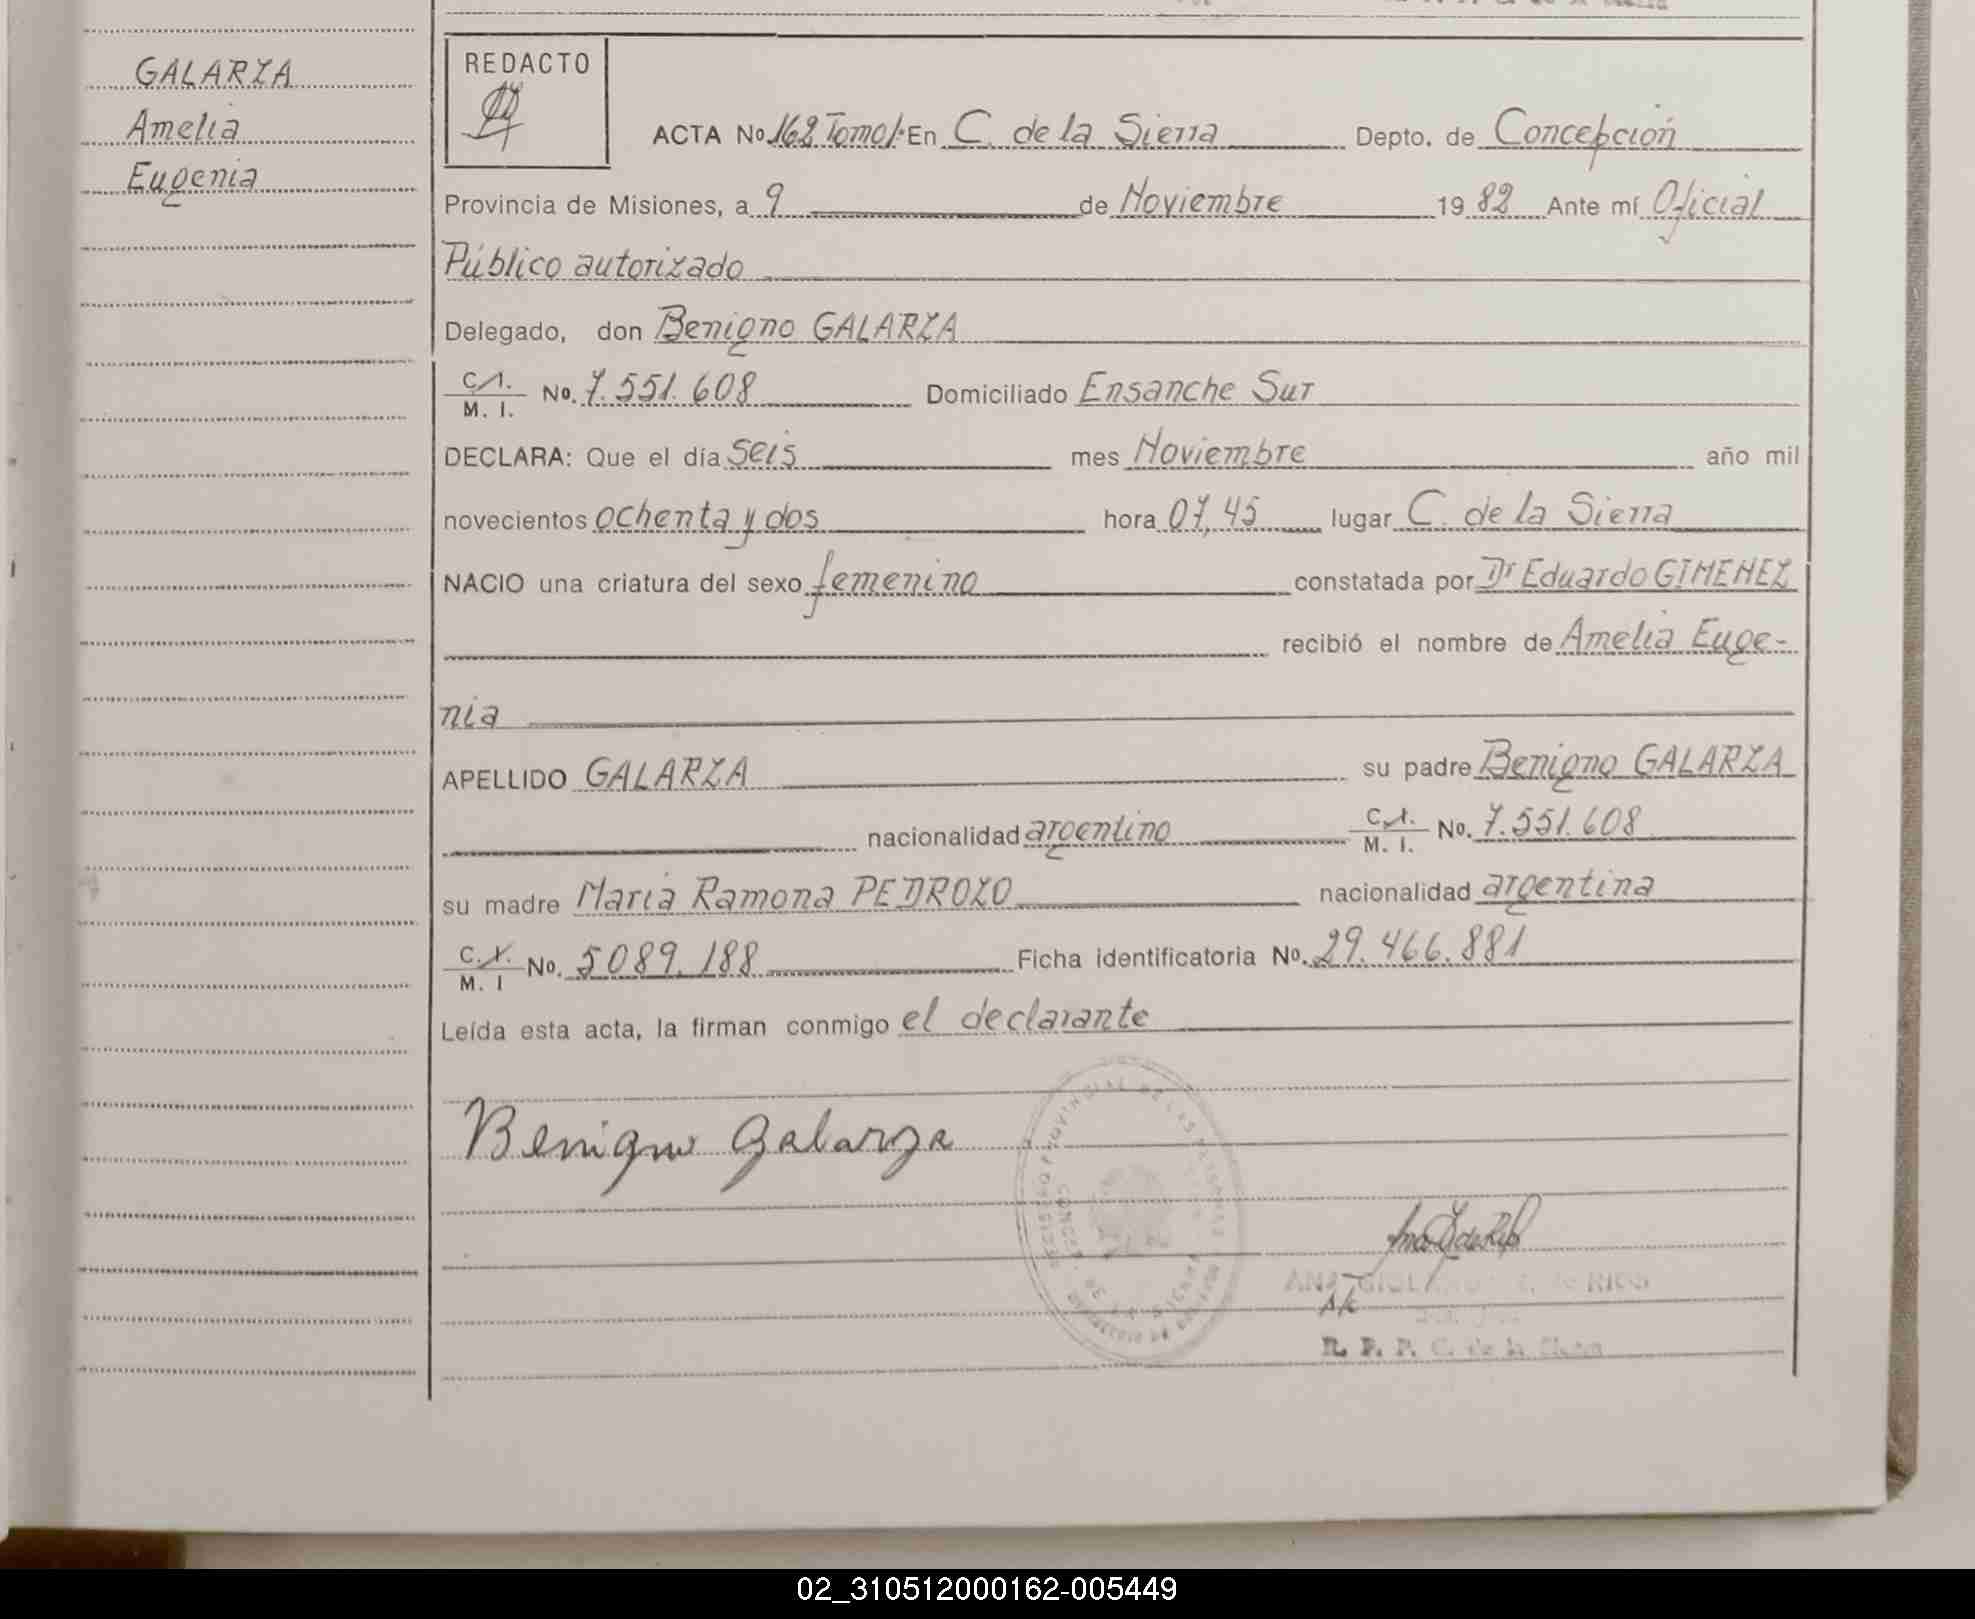 GALARZA
Amelia
Eugenia
REDACTO
ACTA No 162 Tomo I. En C. de la Sierra Depto. de Concepción
Provincia de Misiones, a 9 de Noviembre 19 82 Ante mí Oficial
Público autorizado
Delegado, don Benigno GALARZA
C.I. M. I. No. 7.551.608 Domiciliado Ensanche Sur
DECLARA: Que el día seis mes Noviembre año mil
novecientos ochenta y dos hora 07,45 lugar C. de la Sierra
NACIO una criatura del sexo femenino constatada por Dr Eduardo GIMENEZ
recibió el nombre de Amelia Euge-
nia
APELLIDO GALARZA su padre Benigno GALARZA
nacionalidad argentino C.I. M. I. No. 7.551.608
su madre María Ramona PEDROZO nacionalidad argentina
C.I. M. I No. 5089.188 Ficha identificatoria No. 29.466.881
Leída esta acta, la firman conmigo el declarante
Benigno Galarza
REGISTRO PROVINCIAL DE LAS PERSONAS
CONCEP. DE LA SIERRA
ANA
R. P. P. C. de la Sierra
02_310512000162-005449